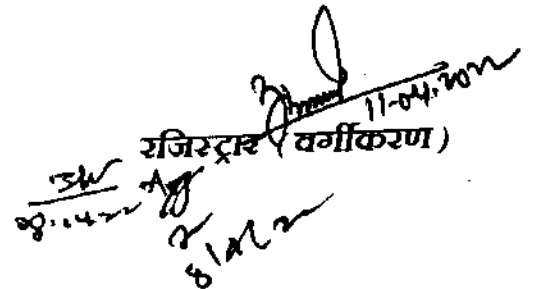 11-04-2022
रजिस्ट्रार (वर्गीकरण)
08.04.22
8/4/22